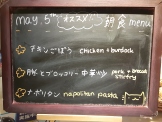 may 5th オススメ 朝食 menu
チキンごぼう chicken + burdock
豚とブロッコリー 中華炒め pork + bread stirfry
ナポリタン napolitan pasta